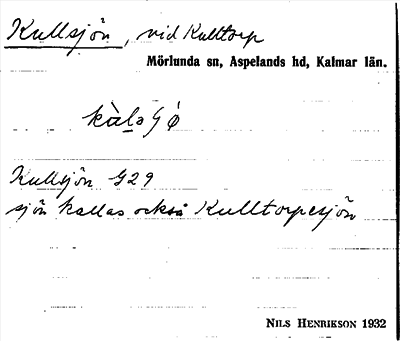 Kullsjön, vid Kulltorp
Mörlunda sn, Aspelands hd, Kalmar län.
Kullsjön G29
sjön kallas också Kulltorpesjön
NILS HENRIKSON 1932